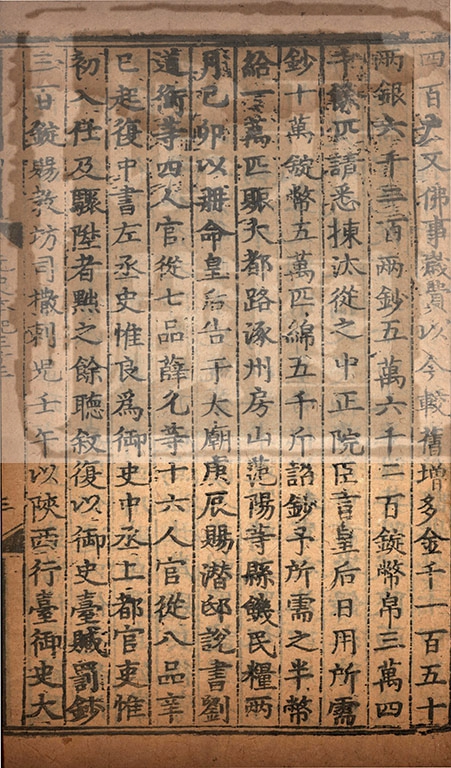 四百又佛事歲費以今較舊增多金千一百五十
兩銀六千二百兩鈔五萬六千二百錠幣帛三萬四
千餘匹請悉揀汰從之中正院臣言皇后日用所需
鈔十萬錠幣五萬匹綿五千斤詔鈔予所需之半幣
給一萬匹賑大都路涿州房山范陽等縣饑民糧兩
月己卯以冊命皇后告于太廟庚辰賜潛邸說書劉
道衡等四人官從七品薛允等十六人官從八品辛
巳起復中書左丞史惟良爲御史中丞上都官吏惟
初入仕及驟陞者黜之餘聽敘復以御史臺贓罰鈔
三百錠賜教坊司撒剌兒壬午以陝西行臺御史大